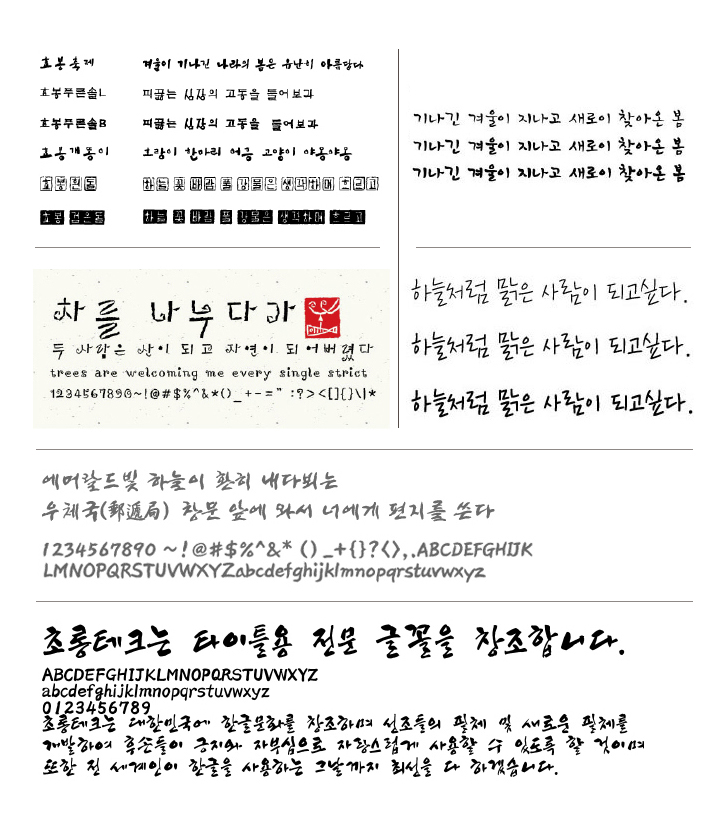 효봉축제 겨울이 기나긴 나라의 봄은 유난히 아름답다
효봉푸른솔L 피끓는 심장의 고동을 들어보라
효봉푸른솔B 피끓는 심장의 고동을 들어보라
효봉개똥이 호랑이 한마리 어흥 고양이 야옹야옹
효봉흰돌 하늘 꽃 바람 풀 강물은 생각하며 흐르고
효봉 검은돌 하늘 꽃 바람 풀 강물은 생각하며 흐르고
기나긴 겨울이 지나고 새로이 찾아온 봄
기나긴 겨울이 지나고 새로이 찾아온 봄
기나긴 겨울이 지나고 새로이 찾아온 봄
하늘처럼 맑은 사람이 되고싶다.
하늘처럼 맑은 사람이 되고싶다.
하늘처럼 맑은 사람이 되고싶다.
나무다라
두 사람은 산이 되고 자연이 되어버렸다
trees are welcoming me every single strict
1234567890~!@#$%^&*()_+-=":?><[]{}\|*
에머랄드빛 하늘이 환히 내다뵈는
우체국(郵遞局) 창문 앞에 와서 너에게 편지를 쓴다
1234567890 ~!@#$%^&* ()_+{}?<>,.ABCDEFGHIJK
LMNOPQRSTUVWXYZabcdefghijklmnopqrstuvwxyz
초롱테크는 타이틀용 전문 글꼴을 창조합니다.
ABCDEFGHIJKLMNOPQRSTUVWXYZ
abcdefghijklmnopqrstuvwxyz
0123456789
초롱테크는 대한민국에 한글문화를 창조하며 선조들의 필체 및 새로운 필체를
개발하여 후손들이 긍지와 자부심으로 자랑스럽게 사용할 수 있도록 할 것이며
또한 전 세계인이 한글을 사용하는 그날까지 최선을 다 하겠습니다.